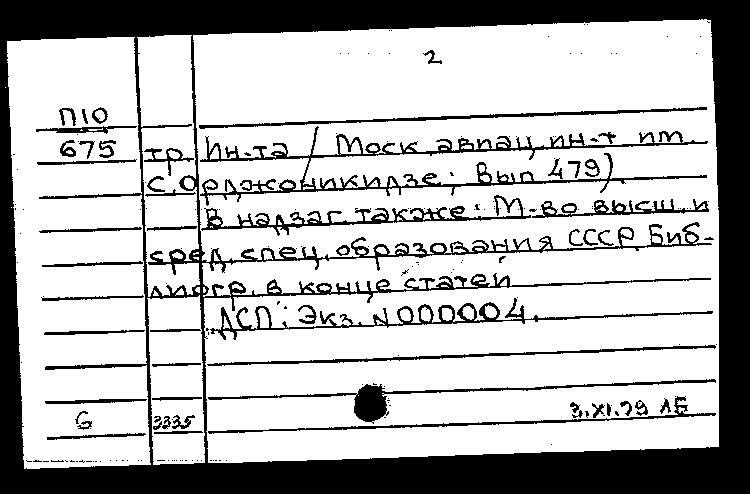 2
П10
675 тр. Ин-та / Моск. авиац. ин-т им.
С. Орджоникидзе; Вып 479)
В надзаг. также: М-во высш. и
сред. спец. образования СССР. Биб-
лиогр. в конце статей
ДСП: Экз. N 000004.
G 3335 3.XI.79 ЛБ